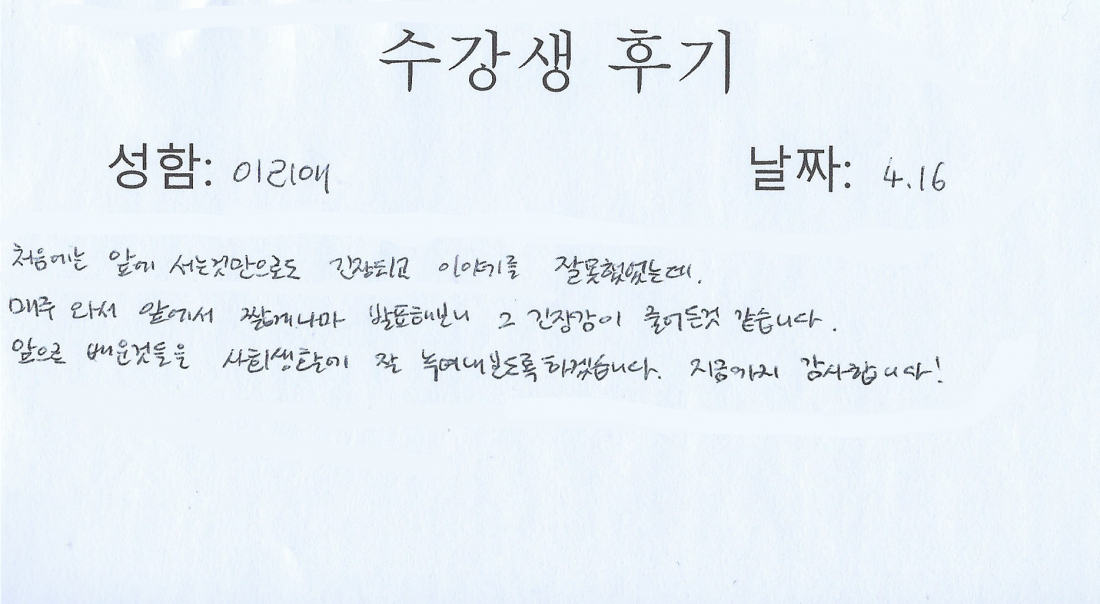 수강생 후기
성함: 이리애 날짜: 4.16
처음에는 앞에 서는것만으로도 긴장되고 이야기를 잘못했었는데,
매주 와서 앞에서 짧게나마 발표해보니 그 긴장감이 줄어든것 같습니다.
앞으로 배운것들을 사회생활에 잘 녹여내보도록하겠습니다. 지금까지 감사합니다!